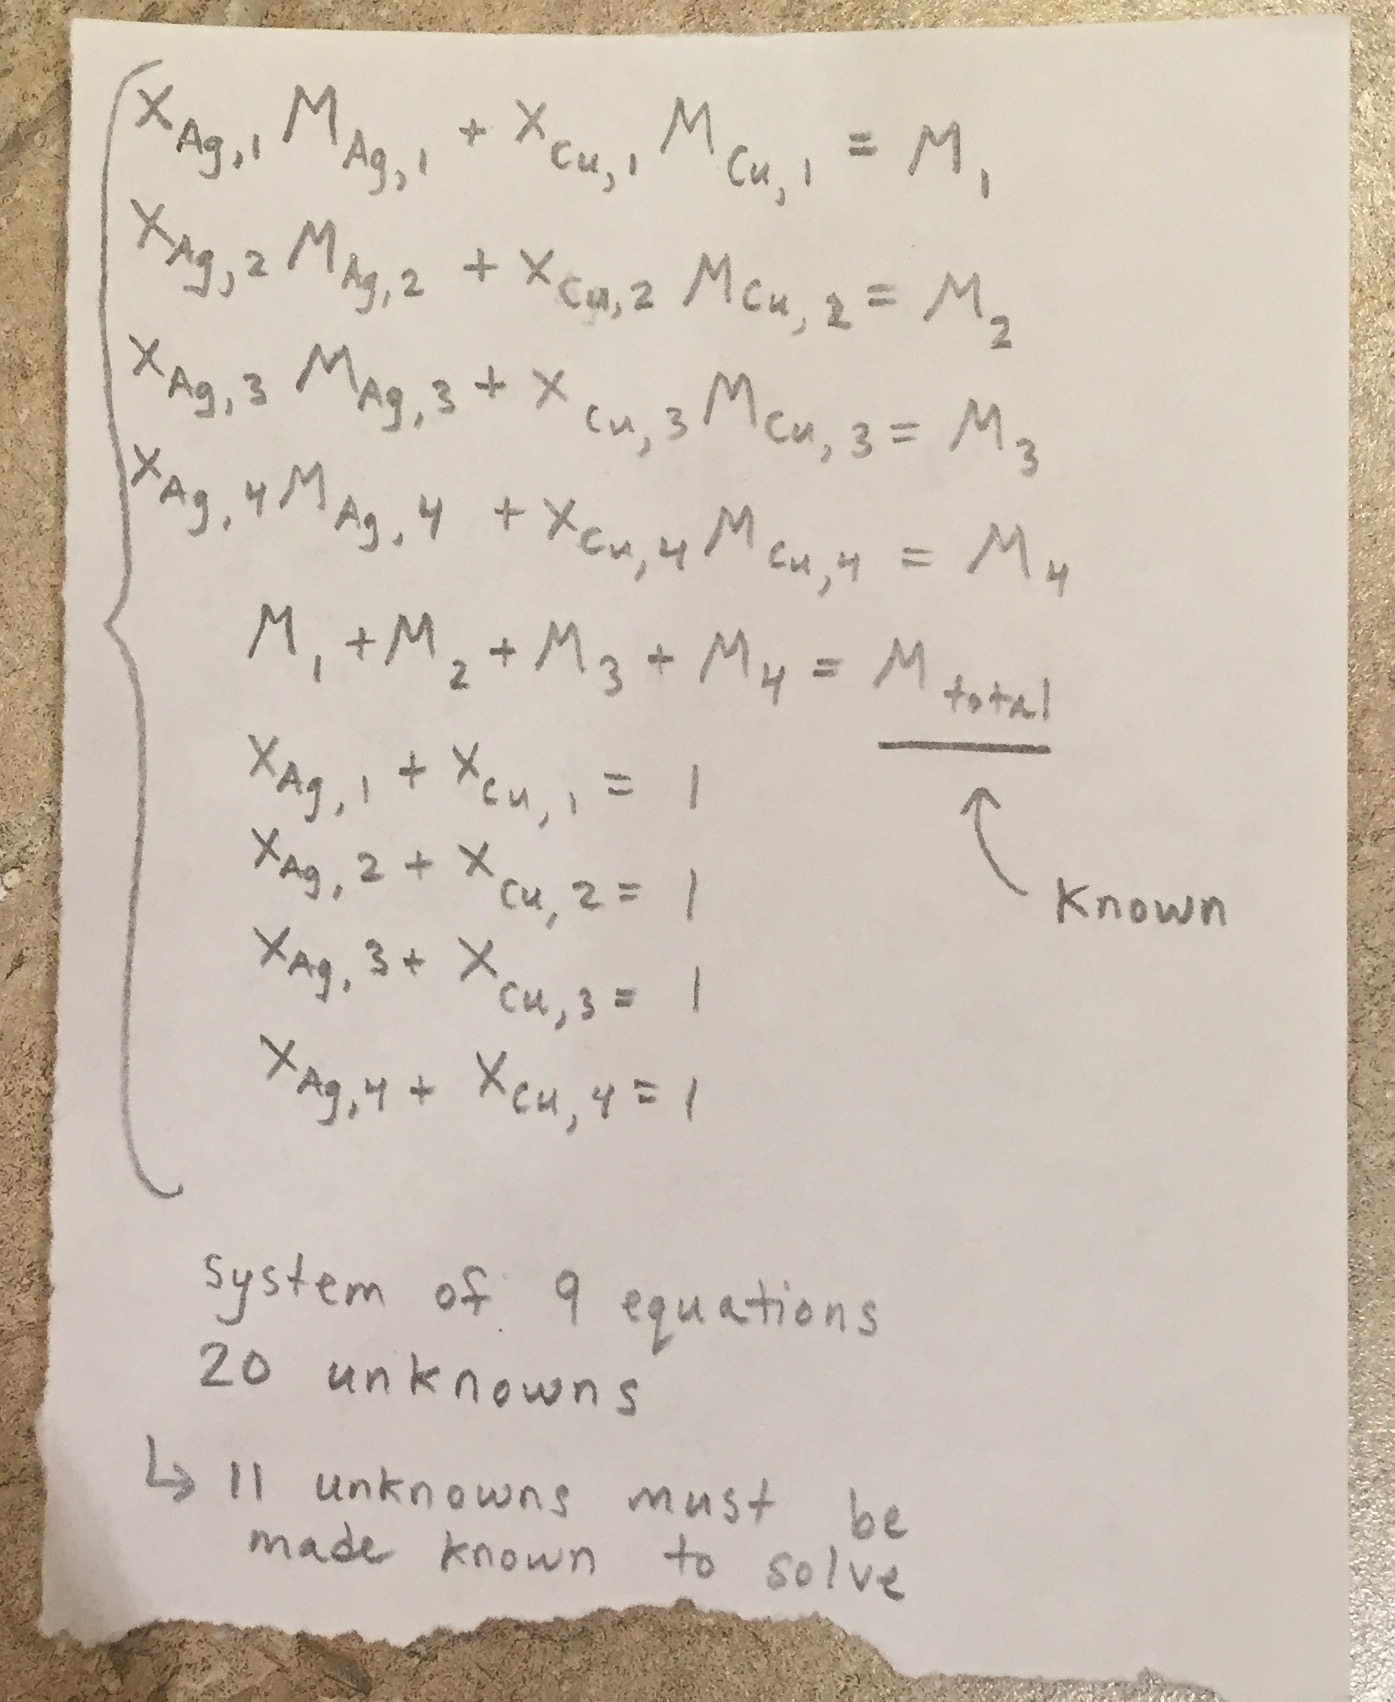 X_Ag,1 M_Ag,1 + X_Cu,1 M_Cu,1 = M_1
X_Ag,2 M_Ag,2 + X_Cu,2 M_Cu,2 = M_2
X_Ag,3 M_Ag,3 + X_Cu,3 M_Cu,3 = M_3
X_Ag,4 M_Ag,4 + X_Cu,4 M_Cu,4 = M_4
M_1 + M_2 + M_3 + M_4 = M_total
X_Ag,1 + X_Cu,1 = 1
X_Ag,2 + X_Cu,2 = 1
Known
X_Ag,3 + X_Cu,3 = 1
X_Ag,4 + X_Cu,4 = 1
system of 9 equations
20 unknowns
↳ 11 unknowns must be
made known to solve